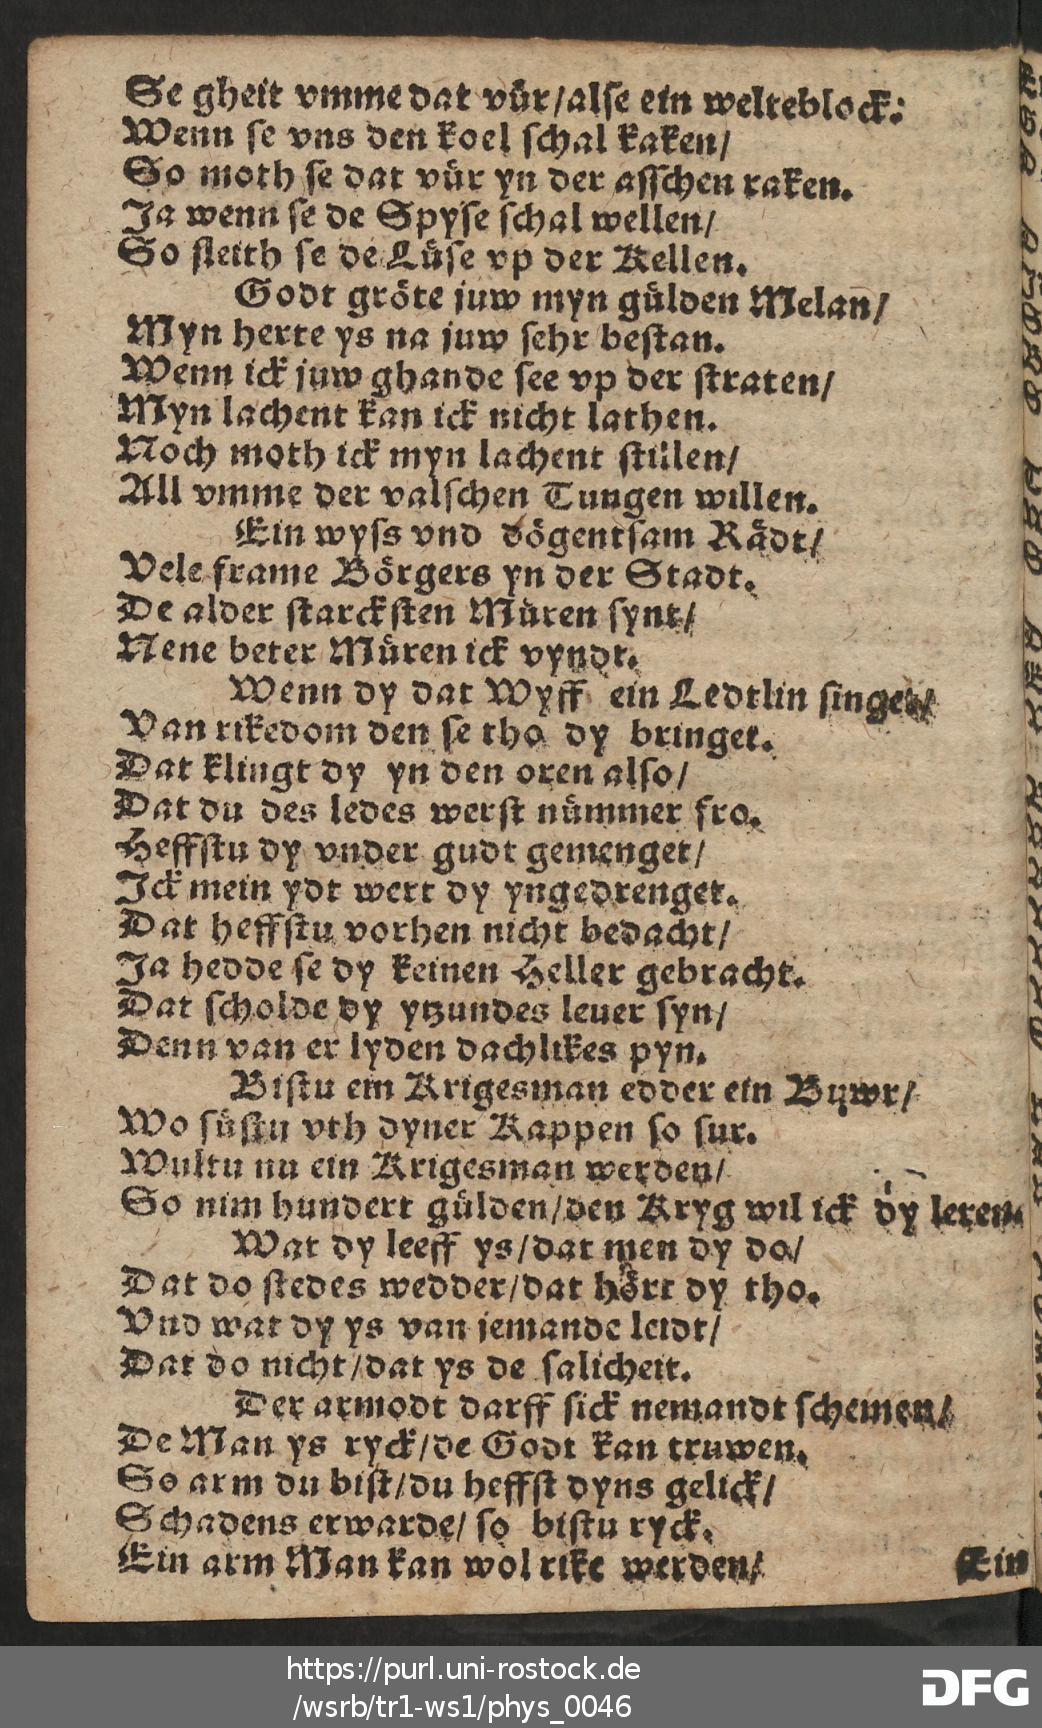 Se gheit vmme dat vür/alse ein welteblock:
Wenn se vns den koel schal kaken/
So moth se dat vür yn der asschen raken.
Ja wenn se de Spyse schal wellen/
So sleith se de Lüse vp der Kellen.
Godt gröte juw myn gülden Melan/
Myn herte ys na juw sehr bestan.
Wenn ick juw ghande see vp der straten/
Myn lachent kan ick nicht lathen.
Noch moth ick myn lachent stillen/
All vmme der valschen Tungen willen.
Ein wyss vnd dögentsam Rädt/
Vele frame Börgers yn der Stadt.
De alder starcksten Müren synt/
Nene beter Müren ick vyndt.
Wenn dy dat Wyff ein Ledtlin singet/
Van rikedom den se tho dy bringet.
Dat klingt dy yn den oren also/
Dat du des ledes werst nümmer fro.
Heffstu dy vnder gudt gemenget/
Ick mein ydt wert dy yngedrenget.
Dat heffstu vorhen nicht bedacht/
Ja hedde se dy keinen Heller gebracht.
Dat scholde dy ytzundes leuer syn/
Denn van er lyden dachlikes pyn.
Bistu ein Krigesman edder ein Buwr/
Wo süstu vth dyner Kappen so sur.
Wultu nu ein Krigesman werden/
So nim hundert gülden/den Kryg wil ick dy leren.
Wat dy leeff ys/dat men dy do/
Dat do stedes wedder/dat hört dy tho.
Vnd wat dy ys van jemande leidt/
Dat do nicht/dat ys de salicheit.
Der armodt darff sick nemandt schemen/
De Man ys ryck/de Godt kan truwen.
So arm du bist/du heffst dyns gelick/
Schadens erwarde/ so bistu ryck.
Ein arm Man kan wol rike werden/
Ein
https://purl.uni-rostock.de
/wsrb/tr1-ws1/phys_0046
DFG